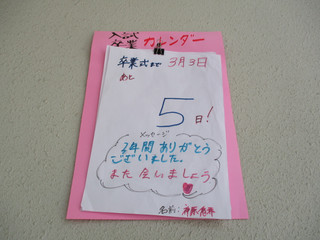 入試
卒業 カレンダー
卒業式まで 3月3日
あと
5日!
メッセージ
3年間 ありがとう
ございました。
また 会いましょう
名前: